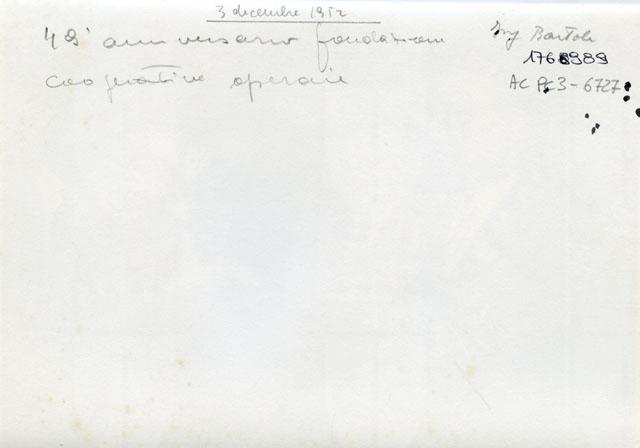 3 dicembre 1952
49° anniversario fondazione
cooperative operaie
Ing Bartoli
1768989
AC PC3-6727